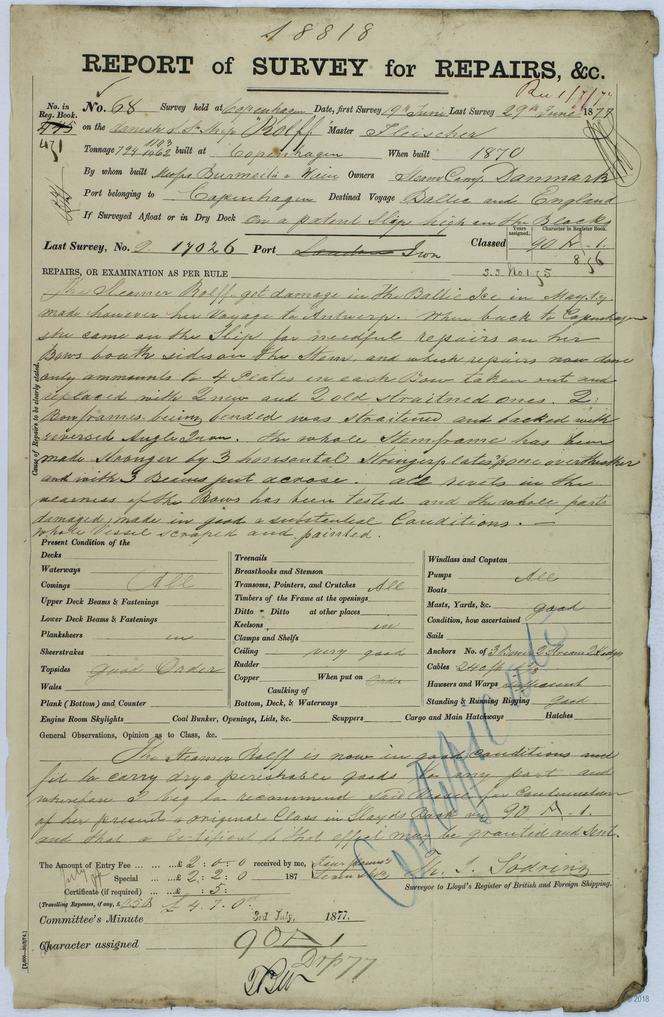 18818
REPORT of SURVEY for REPAIRS, &c.
Rec 1/7/77
No. in Reg. Book.
No. 68 Survey held at Copenhagen Date, first Survey 19th June Last Survey 29th June 1877
471
on the Danish S. St. Ship "Rolff" Master Fleischer
Tonnage 794 1103 1062 built at Copenhagen When built 1870
By whom built Burmeister & Wain Owners Steam Comp. Danmark
Port belonging to Copenhagen Destined Voyage Baltic and England
If Surveyed Afloat or in Dry Dock On a patent Slip high on the Blocks
Years assigned. Character in Register Book.
Last Survey, No. 17026 Port London Iron Classed 90 A.1.
8,76
REPAIRS, OR EXAMINATION AS PER RULE S.S. No 1 75
Cause of Repairs to be clearly stated.
The Steamer Rolff get damage in the Baltic Ice in May,
make however her Voyage to Antwerp. When back to Copenhagen
she came on the Slip for needful repairs on her
Bows bouth sides on the Stem, and which repairs now done
only ammounts to 4 Plates in each Bow taken out and
replaced with 2 new and 2 old straitned ones. 2:
Bowframes being bended was straitened and backed with
reversed Angle Iron. The whole Stemframe has been
made stronger by 3 horisontal Stringerplates one over the other
and with 3 Beams put across. All revets in the
nearness of the Bows has been tested and the whole parts
damaged, made in good & substantial Conditions. —
Whole Vessel scraped and painted.
Present Condition of the
Decks
Waterways
Comings All
Upper Deck Beams & Fastenings
Lower Deck Beams & Fastenings
Planksheers in
Sheerstrakes
Topsides good Order
Wales
Plank (Bottom) and Counter
Treenails
Breasthooks and Stemson
Transoms, Pointers, and Crutches All
Timbers of the Frame at the openings
Ditto Ditto at other places
Keelsons in
Clamps and Shelfs
Ceiling very good
Rudder
Copper When put on Order
Caulking of
Bottom, Deck, & Waterways
Windlass and Capstan
Pumps All
Boats
Masts, Yards, &c. good
Condition, how ascertained
Sails
Anchors No. of 3 Bower 2 Stream 2 Kedge
Cables 240
Hawsers and Warps sufficient
Standing & Running Rigging good
Engine Room Skylights Coal Bunker, Openings, Lids, &c. Scuppers Cargo and Main Hatchways Hatches
General Observations, Opinion as to Class, &c.
The Steamer Rolff is now in good Conditions and
fit to carry dry & perishable goods to any part and
wherefore I beg to recommend said Vessel for Continuation
of her present & original Class in Lloyds Book viz 90 A.1.
and that a Certificat to that effect may be granted and sent.
Certificate
The Amount of Entry Fee £ 2 : 0 : 0 received by me,
Special £ 2 : 2 : 0 187
Certificate (if required) £ : 5 :
(Travelling Expenses, if any, £
£ 4 . 7 . 0
Th. J. Södring
Surveyor to Lloyd's Register of British and Foreign Shipping.
Committee's Minute 3rd July, 1877.
Character assigned 90 A 1
© 2018